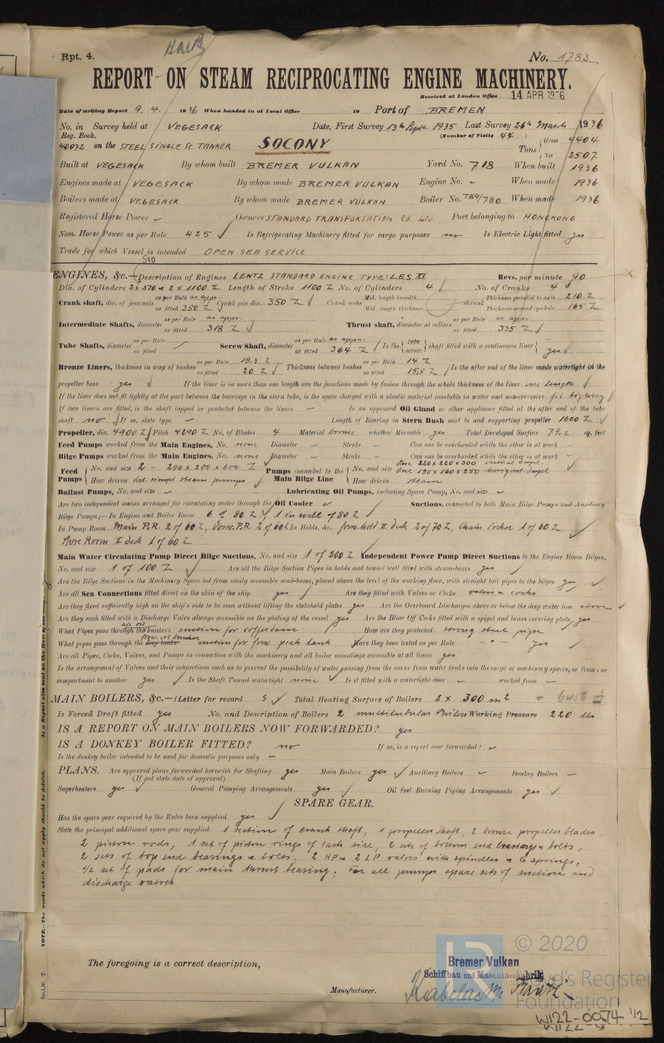 Rpt. 4.
No. 1783
REPORT ON STEAM RECIPROCATING ENGINE MACHINERY.
Received at London Office 14 APR 1936
Date of writing Report 9. 4. 1936 When handed in at Local Office 19 Port of BREMEN
No. in Reg. Book. Survey held at VEGESACK Date, First Survey 13th Sept. 1935 Last Survey 26th March 1936
(Number of Visits 44)
40072 on the STEEL SINGLE SC. TANKER SOCONY Tons Gross 4404
Net 2507
Built at VEGESACK By whom built BREMER VULKAN Yard No. 718 When built 1936
Engines made at VEGESACK By whom made BREMER VULKAN Engine No. - When made 1936
Boilers made at VEGESACK By whom made BREMER VULKAN Boiler No. 789/780 When made 1936
Registered Horse Power - Owners STANDARD TRANSPORTATION CO. LTD. Port belonging to HONGKONG
Nom. Horse Power as per Rule 425 Is Refrigerating Machinery fitted for cargo purposes no Is Electric Light fitted yes
Trade for which Vessel is intended OPEN SEA SERVICE
510
ENGINES, &c.—Description of Engines LENTZ STANDARD ENGINE TYPE: LES XI Revs. per minute 90
Dia. of Cylinders 2 x 570 & 2 x 1100 Z Length of Stroke 1100 Z No. of Cylinders 4 No. of Cranks 4
Crank shaft, dia. of journals as per Rule as appr. as fitted 350 Z Crank pin dia. 350 Z Crank webs Mid. length breadth Mid. length thickness shrunk Thickness parallel to axis 210 Z Thickness around eyehole 165 Z
Intermediate Shafts, diameter as per Rule as appr. as fitted 318 Z Thrust shaft, diameter at collars as per Rule as appr. as fitted 335 Z
Tube Shafts, diameter as per Rule as fitted Screw Shaft, diameter as per Rule as appr. as fitted 364 Z Is the tube screw shaft fitted with a continuous liner yes
Bronze Liners, thickness in way of bushes as per Rule 18.3 Z as fitted 20 Z Thickness between bushes as per Rule 14 Z as fitted 15,5 Z Is the after end of the liner made watertight in the
propeller boss yes If the liner is in more than one length are the junctions made by fusion through the whole thickness of the liner one length
If the liner does not fit tightly at the part between the bearings in the stern tube, is the space charged with a plastic material insoluble in water and non-corrosive fit tightly
If two liners are fitted, is the shaft lapped or protected between the liners - Is an approved Oil Gland or other appliance fitted at the after end of the tube
shaft no If so, state type - Length of Bearing in Stern Bush next to and supporting propeller 1600 Z
Propeller, dia. 4900 Z Pitch 4290 Z No. of Blades 4 Material bronze whether Moveable yes Total Developed Surface 79.2 sq. feet
Feed Pumps worked from the Main Engines, No. none Diameter - Stroke - Can one be overhauled while the other is at work -
Bilge Pumps worked from the Main Engines, No. none Diameter - Stroke - Can one be overhauled while the other is at work -
Feed Pumps No. and size 2 - 280 x 200 x 600 Z Pumps connected to the Main Bilge Line No. and size
How driven steam
Ballast Pumps, No. and size - Lubricating Oil Pumps, including Spare Pump, No. and size. -
Are two independent means arranged for circulating water through the Oil Cooler - Suctions, connected to both Main Bilge Pumps and Auxiliary
Bilge Pumps;—In Engine and Boiler Room 6 of 80 Z 1 in well of 80 Z
In Pump Room Main P.R. 2 of 60 Z In Holds, &c. 2 of 70 Z, Chain locker 1 of 60 Z
Store Room II deck 1 of 60 Z
Main Water Circulating Pump Direct Bilge Suctions, No. and size 1 of 200 Z Independent Power Pump Direct Suctions to the Engine Room Bilges,
No. and size 1 of 100 Z Are all the Bilge Suction Pipes in holds and tunnel well fitted with strum-boxes yes
Are the Bilge Suctions in the Machinery Space led from easily accessible mud-boxes, placed above the level of the working floor, with straight tail pipes to the bilges yes
Are all Sea Connections fitted direct on the skin of the ship yes Are they fitted with Valves or Cocks valves & cocks
Are they fixed sufficiently high on the ship's side to be seen without lifting the stokehold plates yes Are the Overboard Discharges above or below the deep water line above
Are they each fitted with a Discharge Valve always accessible on the plating of the vessel yes Are the Blow Off Cocks fitted with a spigot and brass covering plate yes
What Pipes pass through the bunkers suction for cofferdams How are they protected strong steel pipes
What pipes pass through the suction for forw. peak tank Have they been tested as per Rule yes
Are all Pipes, Cocks, Valves, and Pumps in connection with the machinery and all boiler mountings accessible at all times yes
Is the arrangement of Valves and their connections such as to prevent the possibility of water passing from the sea or from water tanks into the cargo or machinery spaces, or from one
compartment to another yes Is the Shaft Tunnel watertight none Is it fitted with a watertight door - worked from -
MAIN BOILERS, &c.—(Letter for record S) Total Heating Surface of Boilers 2 x 300 m2 = 6458
Is Forced Draft fitted yes No. and Description of Boilers 2 multitubular Boilers Working Pressure 220 lbs
IS A REPORT ON MAIN BOILERS NOW FORWARDED? yes
IS A DONKEY BOILER FITTED? no If so, is a report now forwarded? -
Is the donkey boiler intended to be used for domestic purposes only -
PLANS. Are approved plans forwarded herewith for Shafting yes Main Boilers yes Auxiliary Boilers - Donkey Boilers -
(If not state date of approval)
Superheaters yes General Pumping Arrangements yes Oil fuel Burning Piping Arrangements yes
SPARE GEAR.
Has the spare gear required by the Rules been supplied yes
State the principal additional spare gear supplied 1 section of crank shaft, 1 propeller shaft, 2 bronze propeller blades,
2 piston rods, 1 set of piston rings of each size, 2 sets of bottom end bearings & bolts,
2 sets of top end bearings & bolts, 2 HP & 2 LP valves with spindles & 6 springs,
1/2 set of pads for main thrust bearing, for all pumps spare sets of suction and
discharge valves
The foregoing is a correct description,
Bremer Vulkan
Schiffbau und Maschinenfabrik
Manufacturer.
© 2020
Lloyd's Register
Foundation
W1122-0074 1/2